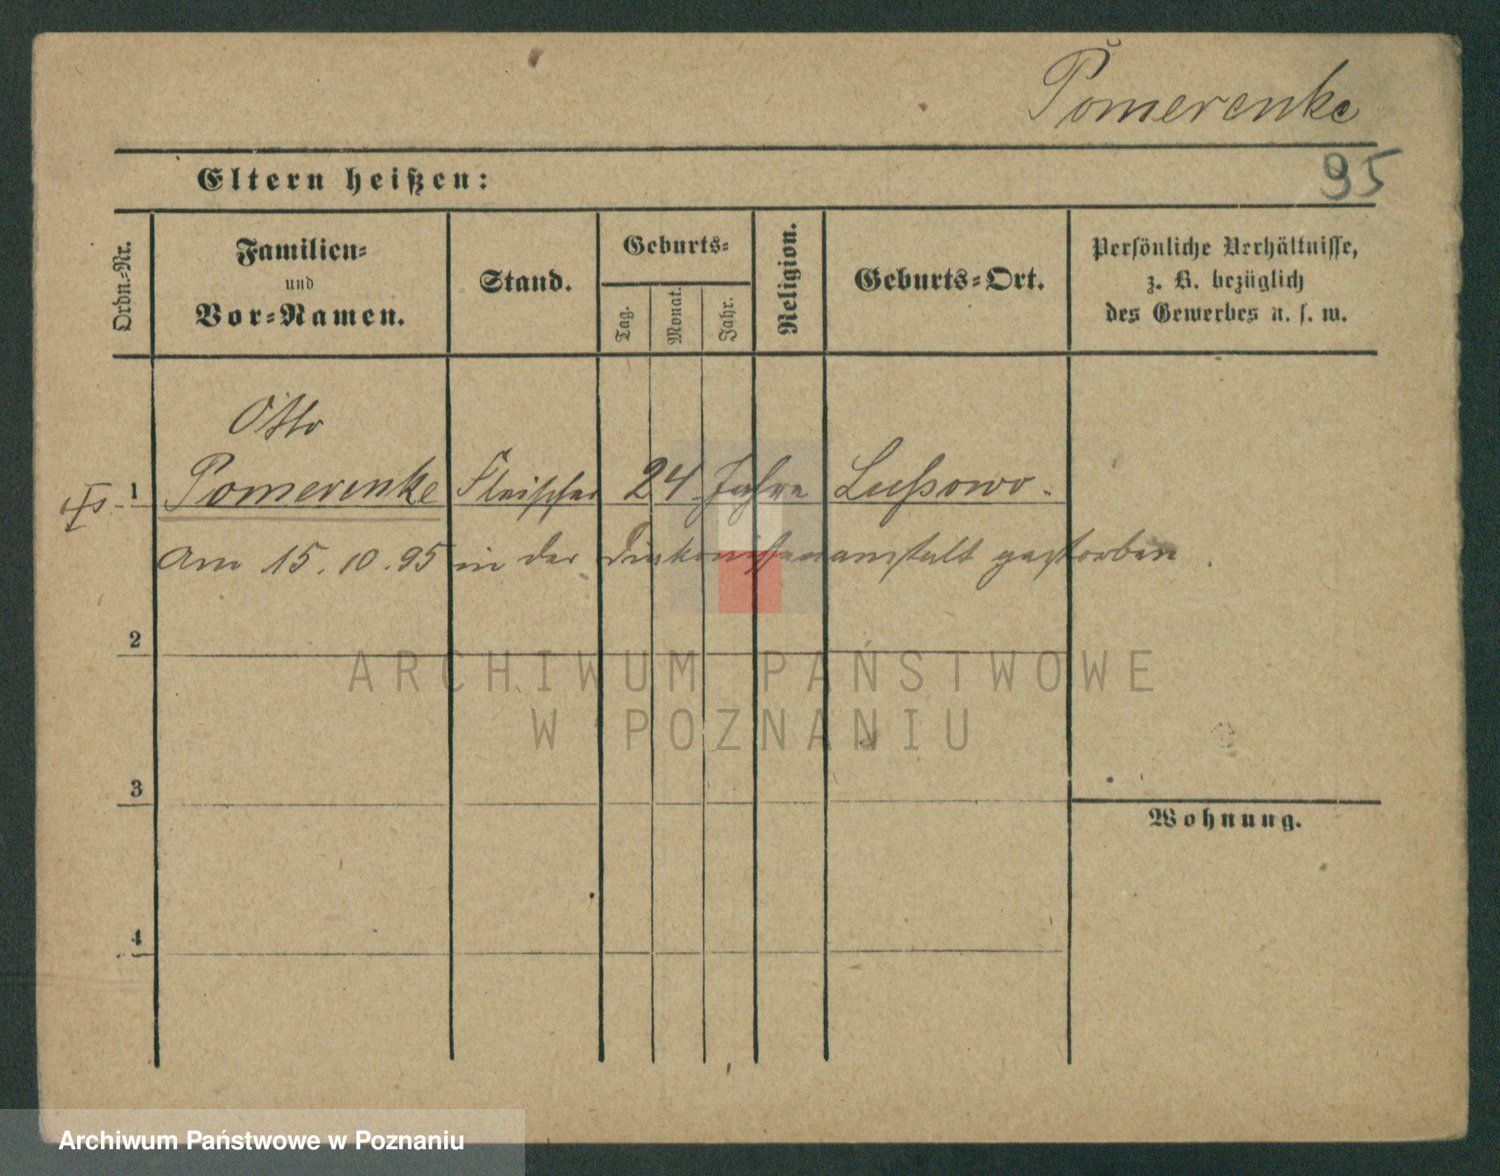 Pomerenke
95
Eltern heißen:
Ordn.-Nr.
Familien-
und
Vor-Namen.
Stand.
Geburts-
Tag.
Monat.
Jahr.
Religion.
Geburts-Ort.
Persönliche Verhältnisse,
z. B. bezüglich
des Gewerbes u. s. w.
Otto
1 Pomerenke Fleischer 24 Jahre Lußowo.
Am 15.10.95 in der Diakonissenanstalt gestorben.
2
3
Wohnung.
4
ARCHIWUM PAŃSTWOWE
W POZNANIU
Archiwum Państwowe w Poznaniu